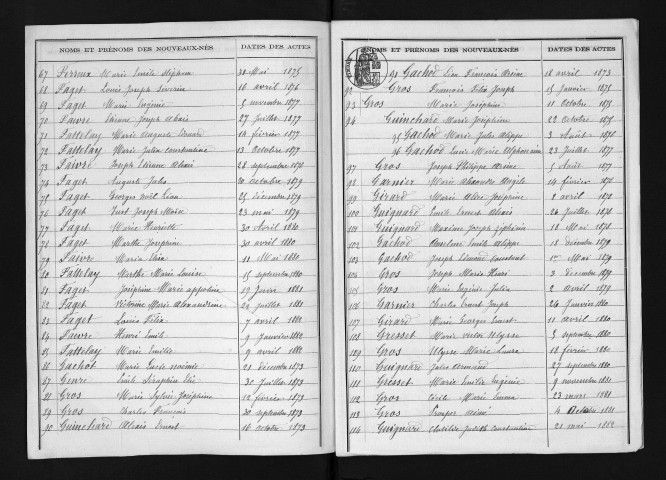 NOMS ET PRÉNOMS DES NOUVEAUX-NÉS DATES DES ACTES
67 Perreux Marie Emile Stéphane 30 Mai 1875
68 Faget Louis Joseph Séverin 16 avril 1876
69 Faget Marie Eugénie 5 novembre 1877
70 Faivre Etienne Joseph Alcais 27 juillet 1877
71 Fattelay Marie Auguste Edouard 14 février 1877
72 Fattelay Marie Julia Constantine 13 octobre 1877
73 Faivre Joseph Etienne Alcais 28 septembre 1879
74 Faget Auguste Jules 20 octobre 1879
75 Faget Georges Noël Léon 25 décembre 1879
76 Faget Just Joseph Moïse 23 mai 1879
77 Faget Marie Henriette 30 Avril 1880
78 Faget Marthe Joséphine 30 avril 1880
79 Faivre Maria Elisa 11 Mai 1880
80 Fattelay Marthe Marie Louise 15 septembre 1880
81 Faget Joséphine Marie Appoline 19 janv 1881
82 Faget Victorine Marie Alexandrine 24 juillet 1881
83 Faget Louis Félix 7 avril 1882
84 Faivre Henri Emile 9 Janvier 1882
85 Fattelay Marie Emilie 9 avril 1882
86 Gachot Marie Lucie Noémie 21 décembre 1873
87 Genre Emile Séraphin Elie 30 Juillet 1873
88 Gros Marie Sylvie Joséphine 12 février 1873
89 Gros Charles François 30 septembre 1873
90 Guinchard Alcais Ernest 16 octobre 1873
NOMS ET PRÉNOMS DES NOUVEAUX-NÉS DATES DES ACTES
91 Gachod Léon François Arsène 18 avril 1873
92 Gros François Félix Joseph 15 Janvier 1875
93 Gros Marie Joséphine 11 Octobre 1875
94 Guinchard Marie Joséphine 22 Octobre 1875
95 Gachod Marie Jules Alippe 3 Août 1876
96 Gachod Lucie Marie Alphonsine 23 Juillet 1877
97 Gros Joseph Philippe Arsène 5 Août 1877
98 Garnier Marie Alexandre Angèle 14 février 1878
99 Girard Marie Alice Joséphine 2 avril 1878
100 Guignard Emile Ernest Alcais 26 Juillet 1878
101 Guignard Maxime Joseph 18 Mai 1878
102 Gachod Anselme Emile Alippe 18 décembre 1879
103 Gachod Joseph Edmond Constant Mai 1879
104 Gros Joseph Marie Henri 3 décembre 1879
105 Gros Marie Eugénie Julia 2 avril 1879
106 Garnier Charles Ernest Joseph 26 Janvier 1880
107 Girard Marie Georges Ernest 11 avril 1880
108 Gresset Marie Victor Ulysse 5 septembre 1880
109 Gros Ulysse Marie Laure 18 février 1880
110 Guignard Jules Armand 27 septembre 1880
111 Gresset Marie Emilie Eugénie 9 novembre 1881
112 Gros Cécile Marie Emma 23 mars 1881
113 Gros Prosper Aimé 4 Octobre 1881
114 Guignard Clotilde Judith Constantine 21 mai 1882